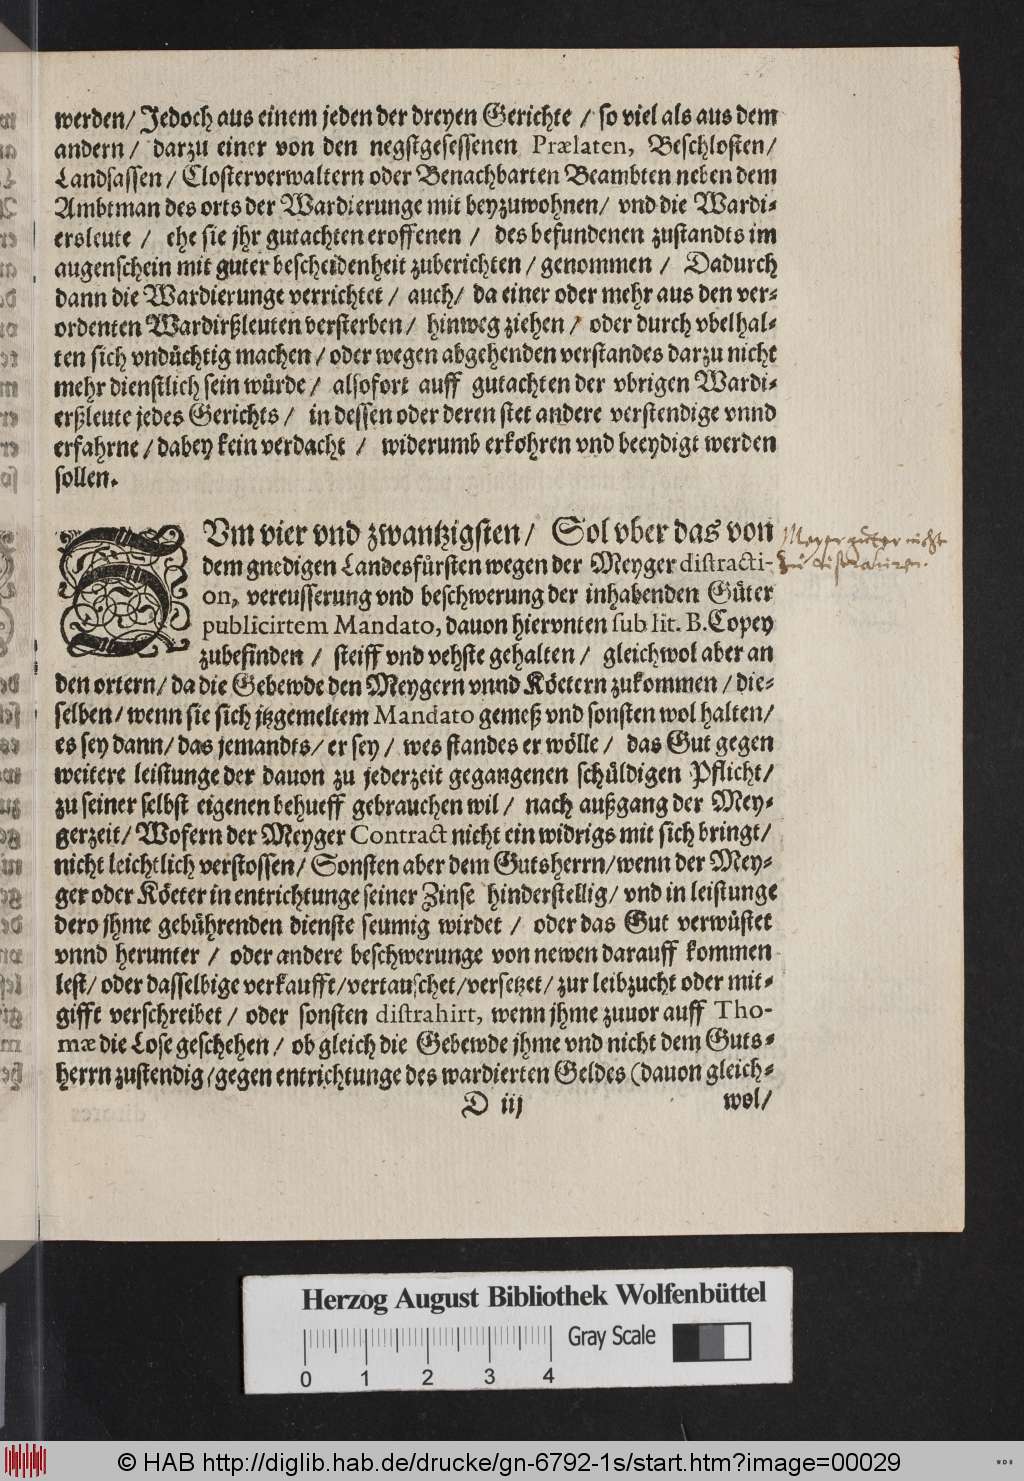 werden/ Jedoch aus einem jeden der dreyen Gerichte / so viel als aus dem
andern/ darzu einer von den negstgesessenen Prælaten, Beschlosten/
Landsassen/ Closterverwaltern oder Benachbarten Beambten neben dem
Ambtman des orts der Wardierunge mit beyzuwohnen/ vnd die Wardi-
ersleute / ehe sie jhr gutachten eroffenen / des befundenen zustandts im
augenschein mit guter bescheidenheit zuberichten/ genommen / Dadurch
dann die Wardierunge verrichtet / auch/ da einer oder mehr aus den ver-
ordenten Wardirßleuten versterben/ hinweg ziehen/ oder durch vbelhal-
ten sich vndüchtig machen/ oder wegen abgehenden verstandes darzu nicht
mehr dienstlich sein würde/ alsofort auff gutachten der vbrigen Wardi-
erßleute jedes Gerichts/ in dessen oder deren stet andere verstendige vnnd
erfahrne/ dabey kein verdacht / widerumb erkohren vnd beeydigt werden
sollen.
ZUm vier vnd zwantzigsten/ Sol vber das von
dem gnedigen Landesfürsten wegen der Meyger distracti-
on, vereusserung vnd beschwerung der inhabenden Güter
publicirtem Mandato, dauon hiervnten sub lit. B. Copey
zubefinden / steiff vnd vehste gehalten/ gleichwol aber an
den ortern/ da die Gebewde den Meygern vnnd Köetern zukommen/ die-
selben/ wenn sie sich jtzgemeltem Mandato gemeß vnd sonsten wol halten/
es sey dann/ das jemandts/ er sey / wes standes er wölle/ das Gut gegen
weitere leistunge der dauon zu jederzeit gegangenen schüldigen Pflicht/
zu seiner selbst eigenen behueff gebrauchen wil/ nach außgang der Mey-
gerzeit/ Wofern der Meyger Contract nicht ein widrigs mit sich bringt/
nicht leichtlich verstossen/ Sonsten aber dem Gutsherrn/ wenn der Mey-
ger oder Köeter in entrichtunge seiner Zinse hinderstellig/ vnd in leistunge
dero jhme gebührenden dienste seumig wirdet / oder das Gut verwüstet
vnnd herunter / oder andere beschwerunge von newen darauff kommen
lest/ oder dasselbige verkaufft/ vertauschet/ versetzet/ zur leibzucht oder mit-
gifft verschreibet / oder sonsten distrahirt, wenn jhme zuuor auff Tho-
mæ die Lose geschehen/ ob gleich die Gebewde jhme vnd nicht dem Guts-
herrn zustendig/ gegen entrichtunge des wardierten Geldes (dauon gleich-
D iij wol/
Meyer güter nicht
zu distrahiren.
Herzog August Bibliothek Wolfenbüttel
Gray Scale
0 1 2 3 4
© HAB http://diglib.hab.de/drucke/gn-6792-1s/start.htm?image=00029